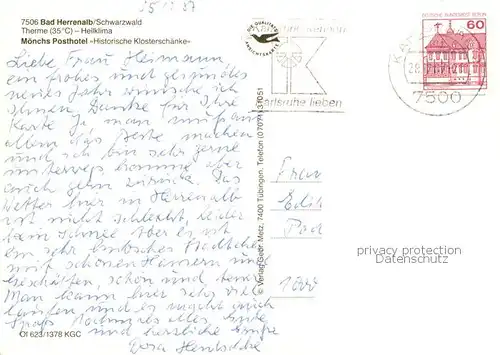 25.12.87
7506 Bad Herrenalb/Schwarzwald
Therme (35°C) – Heilklima
Mönchs Posthotel »Historische Klosterschänke«
Liebe Frau Heimann
ein frohes und gesundes
neues Jahr wünsche ich
Ihnen Danke für Ihre
Karte Ja man muß aus
allem das Beste machen
und ich bin sehr gerne
unterwegs komme aber
auch gern zurück. Das
Wetter hier in Herrenalb
ist nicht schlecht, leider
kein Schnee Aber es ist
ein sehr hübsches Städtchen
mit schönen Häusern und
Geschäften, schön und teuer
Man kann hier sehr viel
laufen und es macht auch
Spaß Nochmals alles Gute
und herzliche Grüße
Dora
OI 623/1378 KGC
© Verlag Gebr. Metz, 7400 Tübingen, Telefon (07071) 31051
DIE QUALITÄTS
ANSICHTSKARTE
Karlsruhe lieben
DEUTSCHE BUNDESPOST BERLIN
60
7500
Frau
Edith
1000
privacy protection
Datenschutz